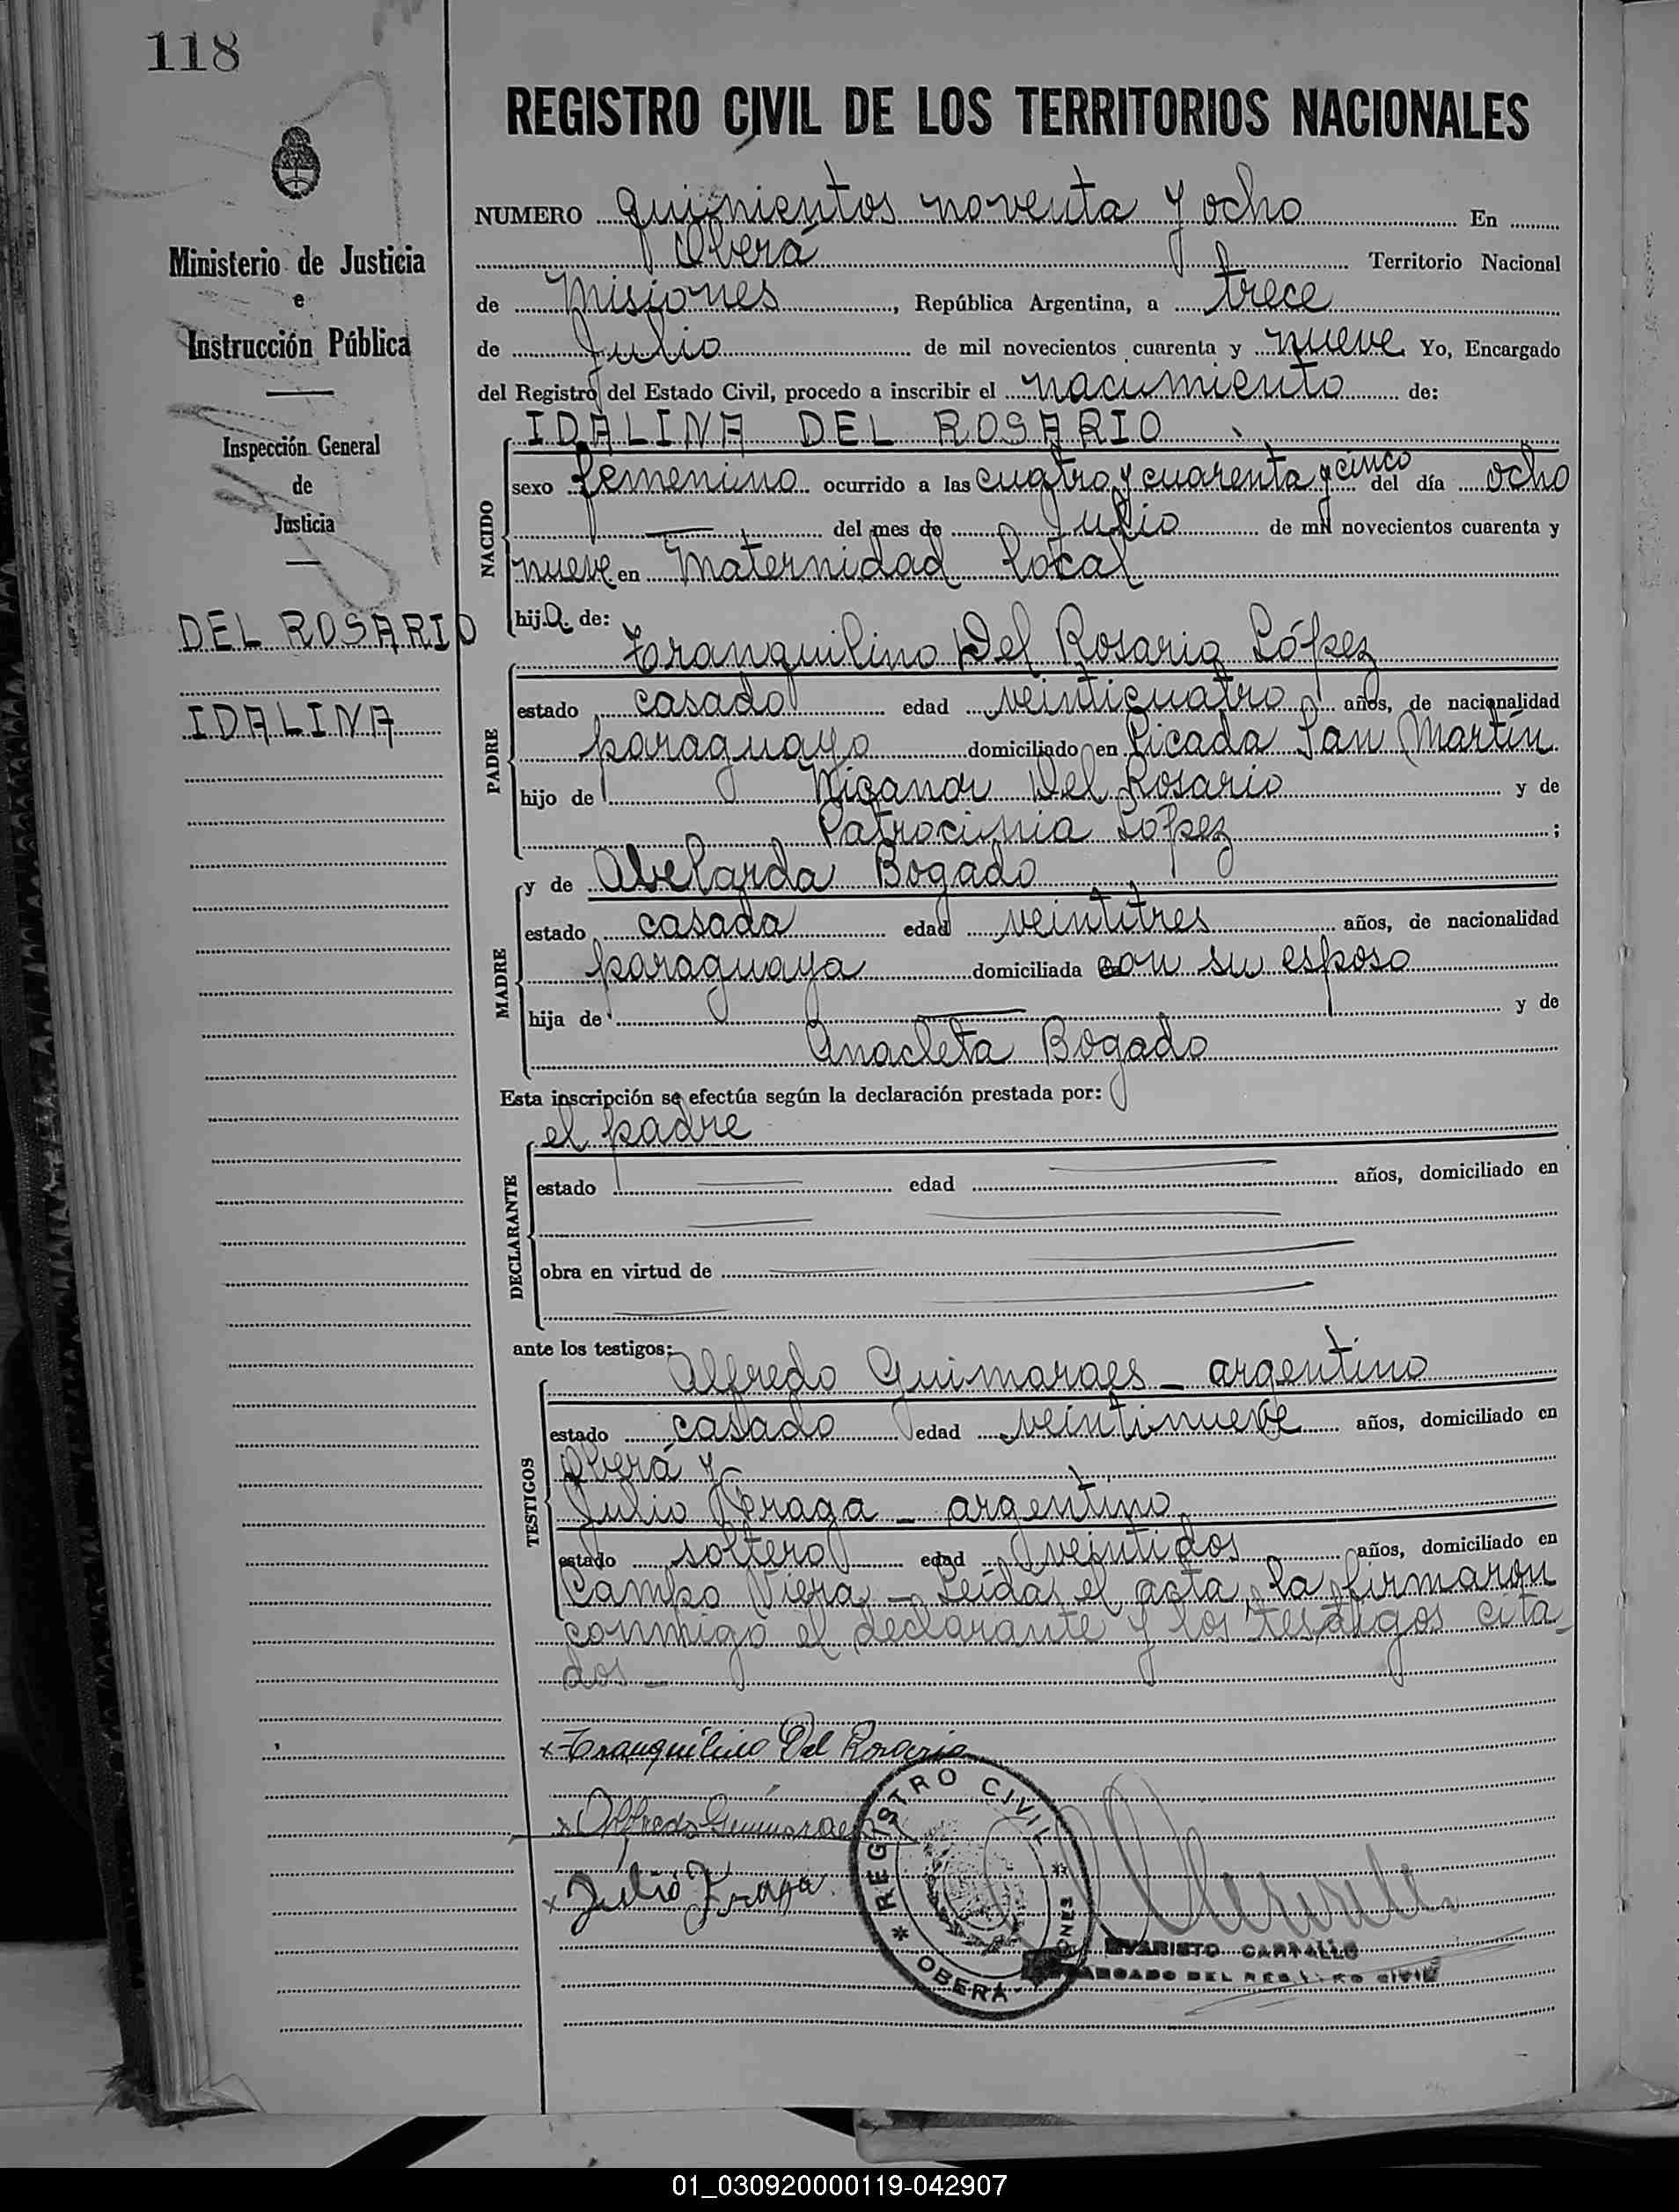 118
REGISTRO CIVIL DE LOS TERRITORIOS NACIONALES
Ministerio de Justicia
e
Instrucción Pública
Inspección General
de
Justicia
DEL ROSARIO
IDALINA
NUMERO quinientos noventa y ocho En
Oberá Territorio Nacional
de Misiones, República Argentina, a trece
de Julio de mil novecientos cuarenta y nueve Yo, Encargado
del Registro del Estado Civil, procedo a inscribir el nacimiento de:
IDALINA DEL ROSARIO
NACIDO
sexo femenino ocurrido a las cuatro y cuarenta y cinco del día ocho
del mes de Julio de mil novecientos cuarenta y
nueve en Maternidad Local
hija de:
Tranquilino Del Rosario López
PADRE
estado casado edad veinticuatro años, de nacionalidad
paraguayo domiciliado en Picada San Martín
hijo de Nicanor Del Rosario y de
Patrocinia López ;
y de Abelarda Bogado
MADRE
estado casada edad veintitres años, de nacionalidad
paraguaya domiciliada con su esposo
hija de — y de
Anacleta Bogado
Esta inscripción se efectúa según la declaración prestada por:
el padre
DECLARANTE
estado — edad — años, domiciliado en
obra en virtud de
ante los testigos:
Alfredo Guimaraes - argentino
TESTIGOS
estado casado edad veintinueve años, domiciliado en
Oberá y
Julio Fraga - argentino
estado soltero edad veintidos años, domiciliado en
Campo Viera - Leída el acta, la firmaron
conmigo el declarante y los testigos cita-
dos -
x Tranquilino Del Rosario
x Alfredo Guimaraes
x Julio Fraga
* REGISTRO CIVIL *
OBERÁ
EVARISTO CARVALLO
ENCARGADO DEL REGISTRO CIVIL
01_030920000119-042907